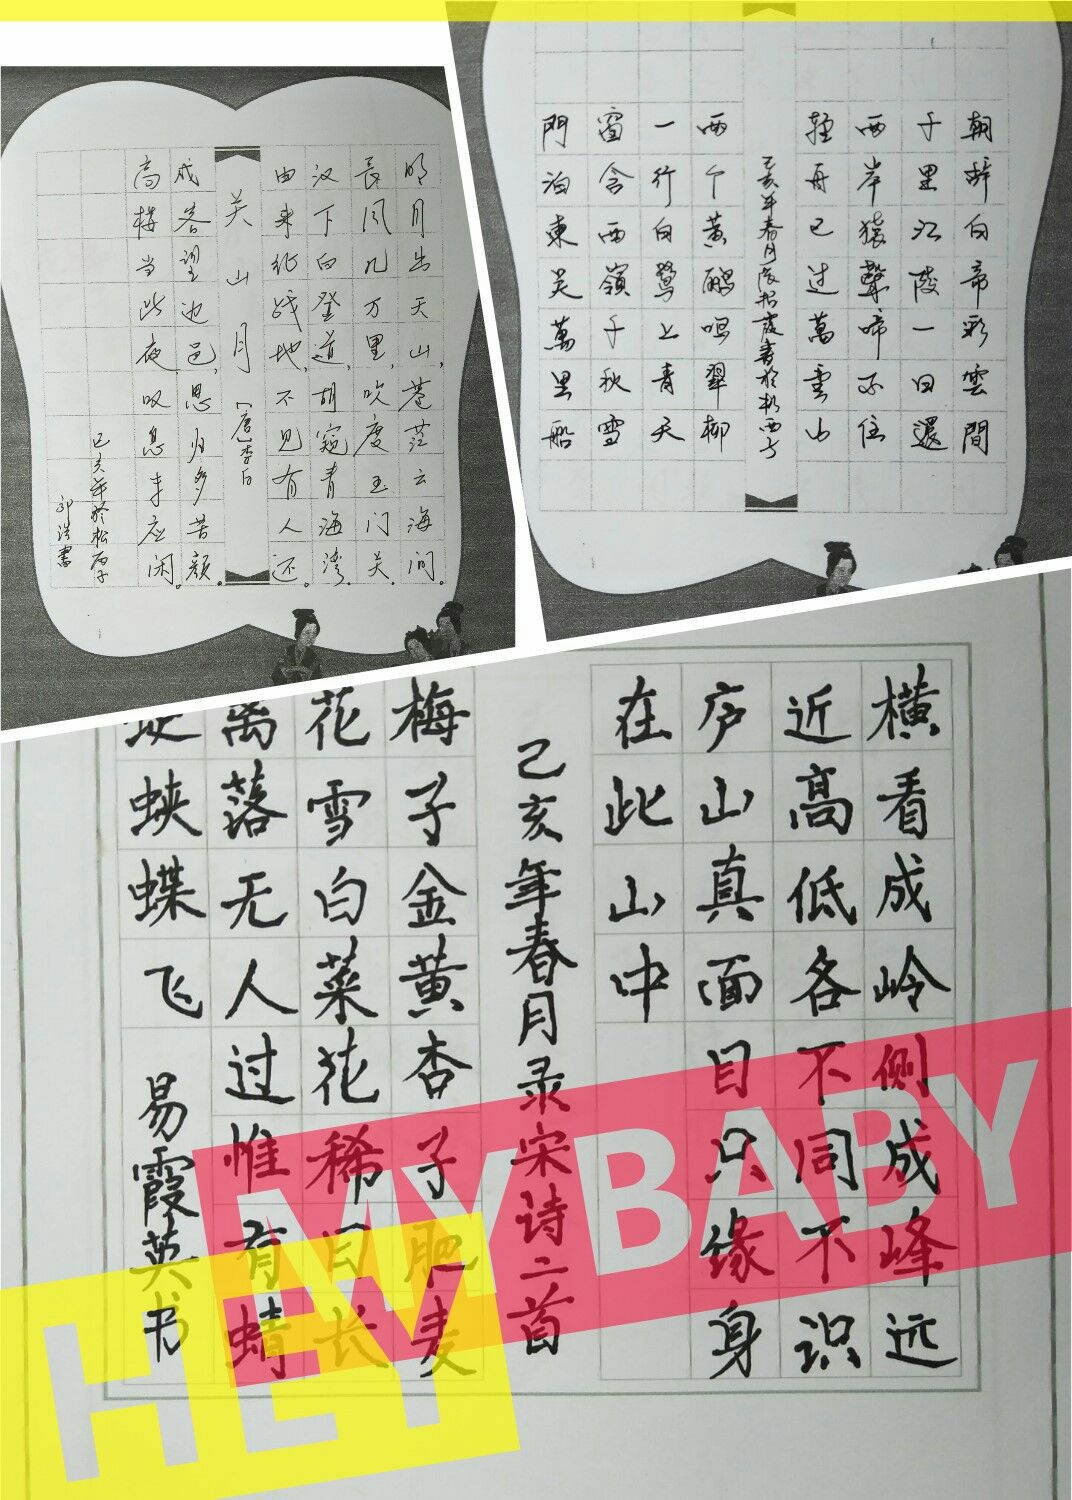 明月出天山,苍茫云海间.
長风几万里,吹度玉门关.
汉下白登道,胡窥青海湾.
由来征战地,不见有人还.
关山月 【唐】李白
戍客望边邑,思归多苦颜。
高楼当此夜,叹息未应闲。
己亥年於松西子
書
朝辞白帝彩雲間
千里江陵一日還
两岸猿聲啼不住
轻舟已过萬重山
己亥年春月書於松西子
两个黄鹂鳴翠柳
一行白鹭上青天
窗含西嶺千秋雪
門泊東吴萬里船
横看成岭侧成峰远
近高低各不同不识
庐山真面目只缘身
在此山中
己亥年春月录宋诗二首
梅子金黄杏子肥麦
花雪白菜花稀日长
离落无人过惟有蜻
蜓蛱蝶飞 易霞英书
HEY
MY BABY